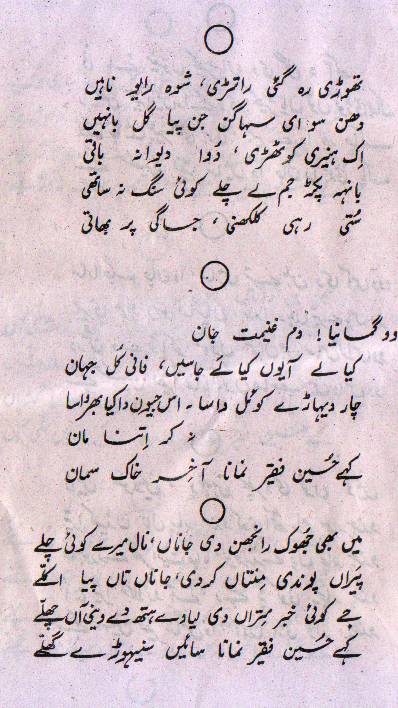 تھوڑی رہ گئی راتڑی، شوہ رالیو ناہیں
دھن سو ای سہاگن جن پیا گل بانہیں
اِک ہنیری کوٹھڑی، دُوا دیوا نہ باتی
بانہہ پکڑ جم لے چلے کوئی سنگ نہ ساتھی
سُتی رہی کلکھنی، جاگی پر بھاتی
وو گمانیا! دم غنیمت جان
کیا لے آیوں کیا لے جاسیں، فانی کُل جہان
چار دیہاڑے گوئل واسا۔ اس جیون دا کیا بھرواسا
نہ کر اِتنا مان
کہے حُسین فقیر نمانا آخر خاک سمان
میں بھی جھوک رانجھن دی جاناں، نال میرے کوئی چلے
پَیراں پوندی مِنتاں کردی، جاناں تاں پیا اکلّے
جے کوئی خبر متراں دی لیاوے ہتھ دے دینی آں چھلّے
کہے حُسین فقیر نمانا سائیں سنیہوڑے گھلّے